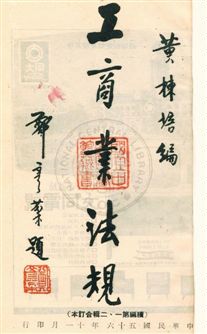 黃棟培編
工商業法規
鄭彥棻題
(續編第一、二輯合訂本)
中華民國五十六年十一月印行